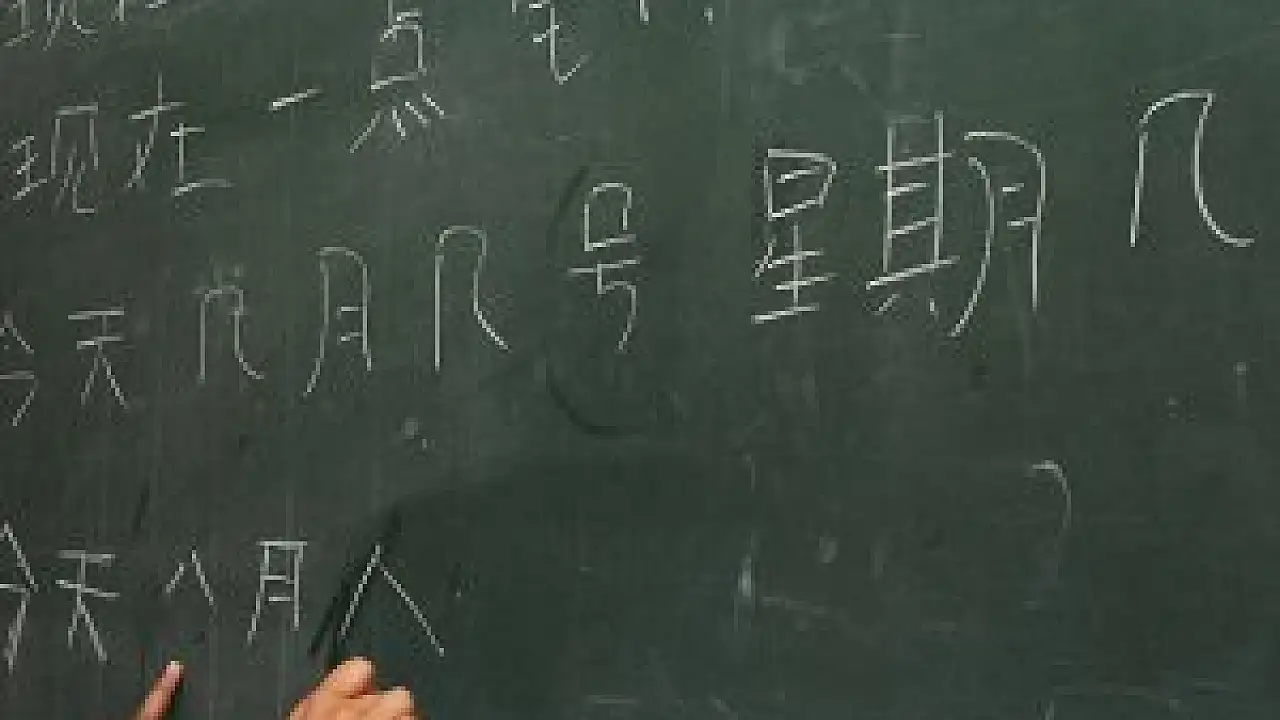 现在
现在一点
今天几月几号星期几
今天八月八